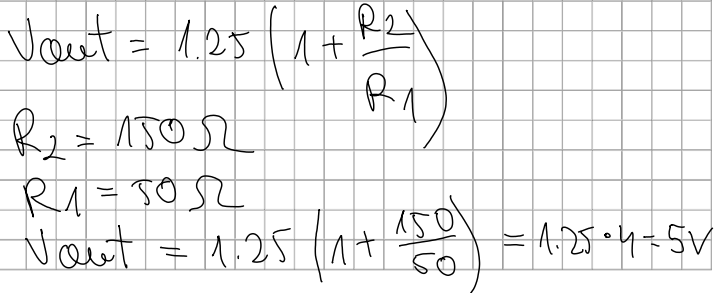 Vout = 1.25 (1 + R2/R1)
R2 = 150 Ω
R1 = 50 Ω
Vout = 1.25 (1 + 150/50) = 1.25 · 4 = 5V